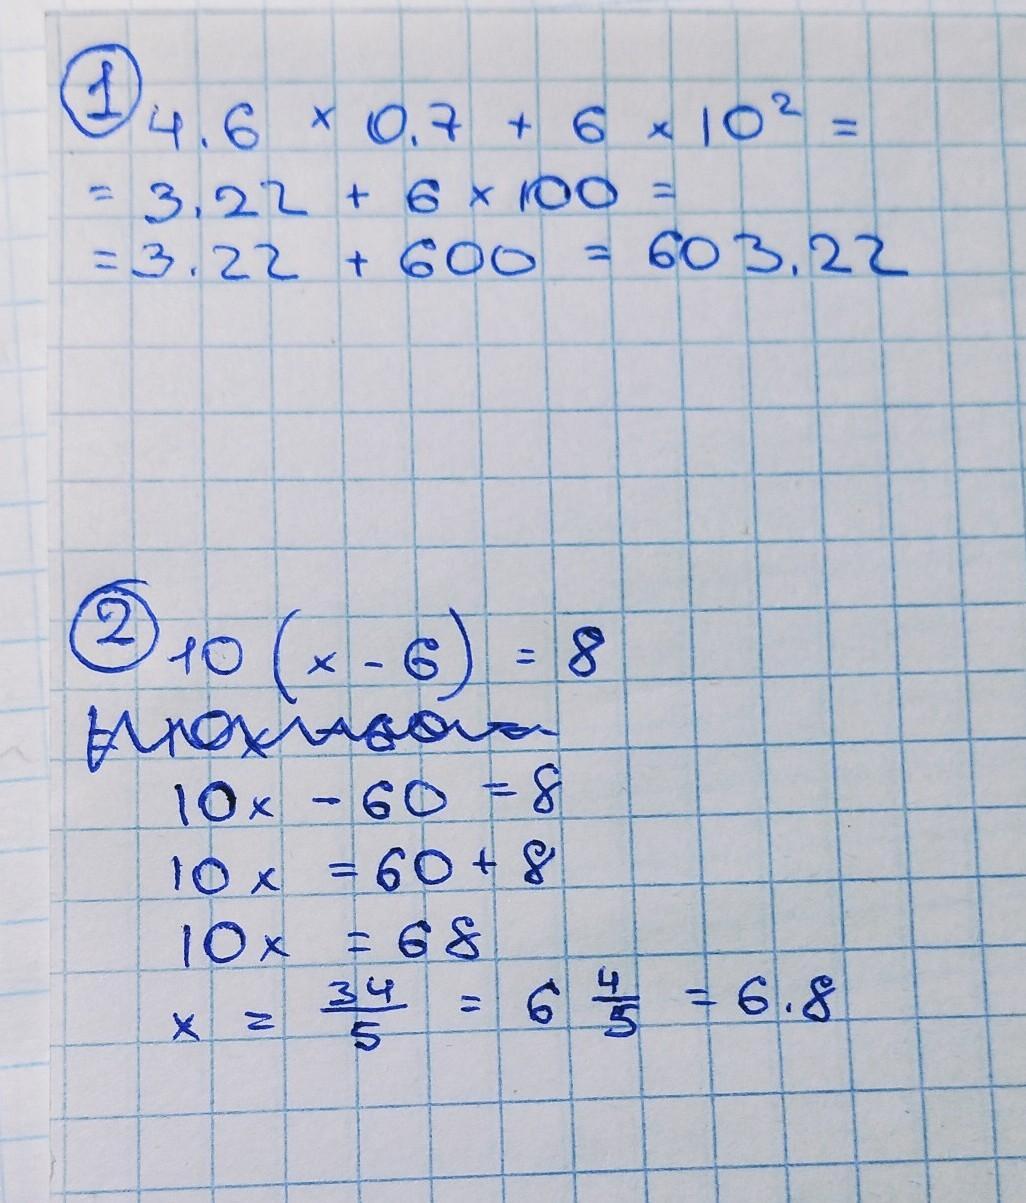 ① 4.6 × 0.7 + 6 × 10² =
= 3.22 + 6 × 100 =
= 3.22 + 600 = 603.22
② 10 (x - 6) = 8
10x - 60 = 8
10x = 60 + 8
10x = 68
x = 34/5 = 6 4/5 = 6.8